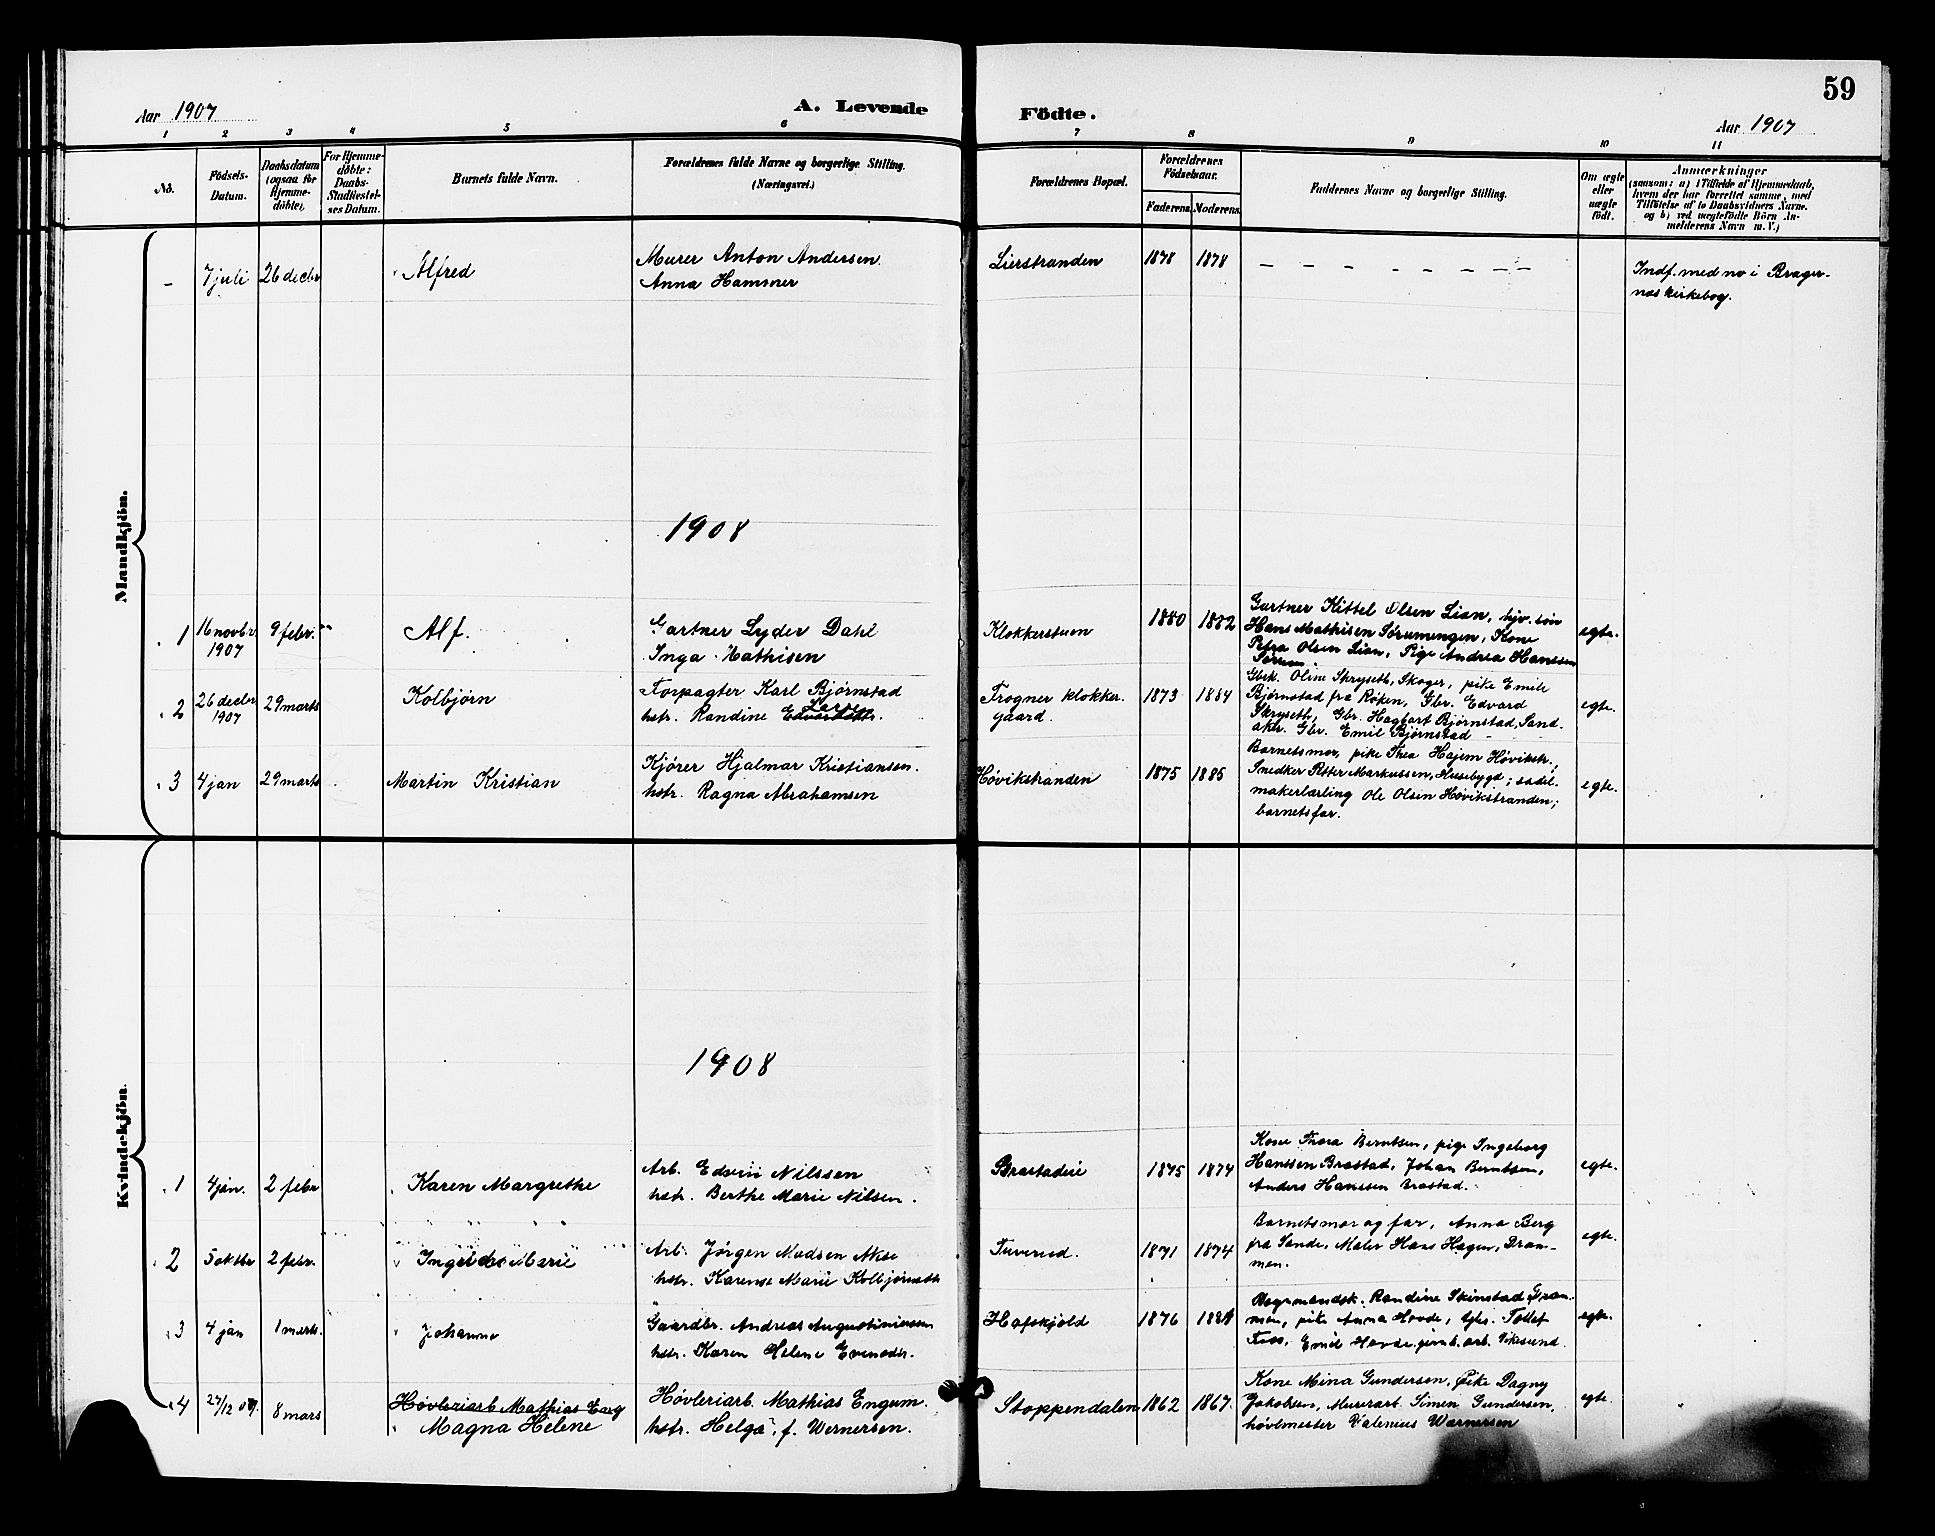 59
Aar 1907
A. Levende
Födte.
Aar 1907
1 2 3 4 5 6 7 8 9 10 11
No.
Födsels-
Datum.
Daabsdatum
(ogsaa for
Hjemme-
døbte).
For Hjemme-
døbte:
Daabs-
Stadfæstel-
ses Datum.
Barnets fulde Navn.
Forældrenes fulde Navne og borgerlige Stilling.
(Næringsvei.)
Forældrenes Bopæl.
Forældrenes
Födselsaar.
Faderens.
Moderens.
Faddernes Navne og borgerlige Stilling.
Om ægte
eller
uægte
født.
Anmærkninger
(saasom: a) i Tilfælde af Hjemmedaab,
hvem der har forrettet samme, med
Tilföielse af to Daabsvidners Navne.
og b) ved uægtefödte Börn An-
melderens Navn m. V.)
Mandkjön.
- 7 juli 26 decbr Alfred
Murer Anton Andersen.
Anna Hammer
Lierstranden 1878 1878 - - - - - - - -
Indf. med no i Brager-
næs kirkebog.
1908
1 16 novbr. 1907 9 febr. " Alf.
Gartner Lyder Dahl
Inga Mathisen
Klokkerstuen 1880 1882
Gartner Kittel Olsen Lian, hjv. søn
Hans Mathisen Sørumengen, Kone
Petra Olsen Lian, Pige Andrea Hanssen
Sørum.
egte.
2 26 decbr 1907 29 marts Kolbjørn
Forpagter Karl Bjørnstad
hstr. Randine Larsen
Frogner klokker-
gaard. 1873 1884
Gbrk. Oline Skryseth, Skoger, pike Emile
Bjørnstad fra Røken, Gbr. Edvard
Skryseth, Gbr. Hagbart Bjørnstad, Sand
aker. Gbr. Emil Bjørnstad -
egte.
3 4 jan 29 marts Martin Kristian
Kjører Hjalmar Kristiansen.
hstr. Ragna Abrahamsen
Høvikstranden 1875 1885
Barnetsmor, pike Thea Hajem Høvikstr.,
Snedker Petter Markussen, Husebygd; sadel-
makerlærling Ole Olsen Høvikstranden;
barnetsfar.
egte.
Kvindekjön.
1908
1 4 jan. 2 febr Karen Margrethe
Arb. Edvin Nilssen
hstr. Berthe Marie Nilsen.
Brastadeie 1875 1874
Kone Thora Berntsen, pige Ingeborg
Hanssen Brastad, Johan Berntsen,
Anders Hanssen Brastad.
egte.
2 5 oktbr 2 febr. Marie
Arb. Jørgen Madsen
hstr. Karense Marie Kolbjørnsdtr
Tuverud. 1871 1874
Barnetsmor og far, Anna Berg
fra Sande, Maler Hans Hagen, Dram-
men.
egte.
3 4 jan 1 marts. Johanne
Gaardbr. Andreas Augustiniussen
hstr. Karen Helene Evensdtr.
Hafskjold 1876
Vognmandsk. Randine Skinstad Dram-
men, pike Anna Hovde, Gbr. Tollef
Foss, Emil Hovde jernb. arb. Vikesund.
egte.
4 27/12 07. 8 mars
Høvleriarb. Mathias Eng
Magna Helene
Høvleriarb. Mathias Engum.
hstr. Helga, f. Wernersen.
Stoppendalen 1862 1867.
Kone Mina Gundersen, Pike Dagny
Jakobsen, Murerarb. Simen Gundersen,
høvlmester Valenius Warnersen
egte.